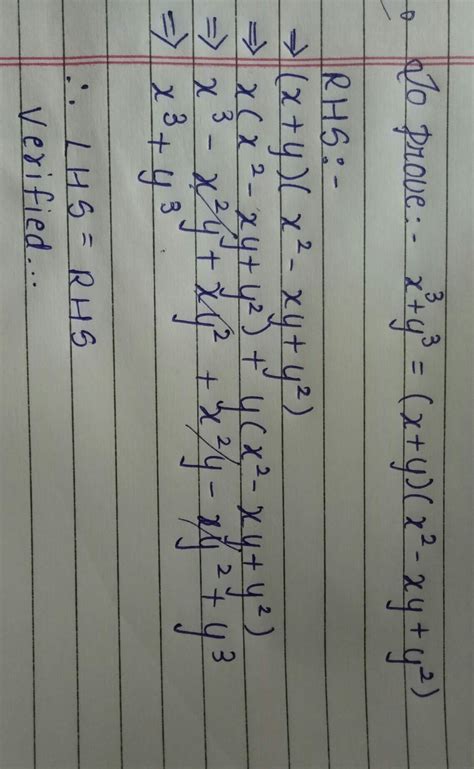 To prove:- x³+y³ = (x+y)(x²-xy+y²)
RHS:-
→ (x+y)(x²-xy+y²)
⇒ x(x²-xy+y²) + y(x²-xy+y²)
⇒ x³ - x²y + xy² + x²y - xy² + y³
⇒ x³ + y³
∴ LHS = RHS
Verified...